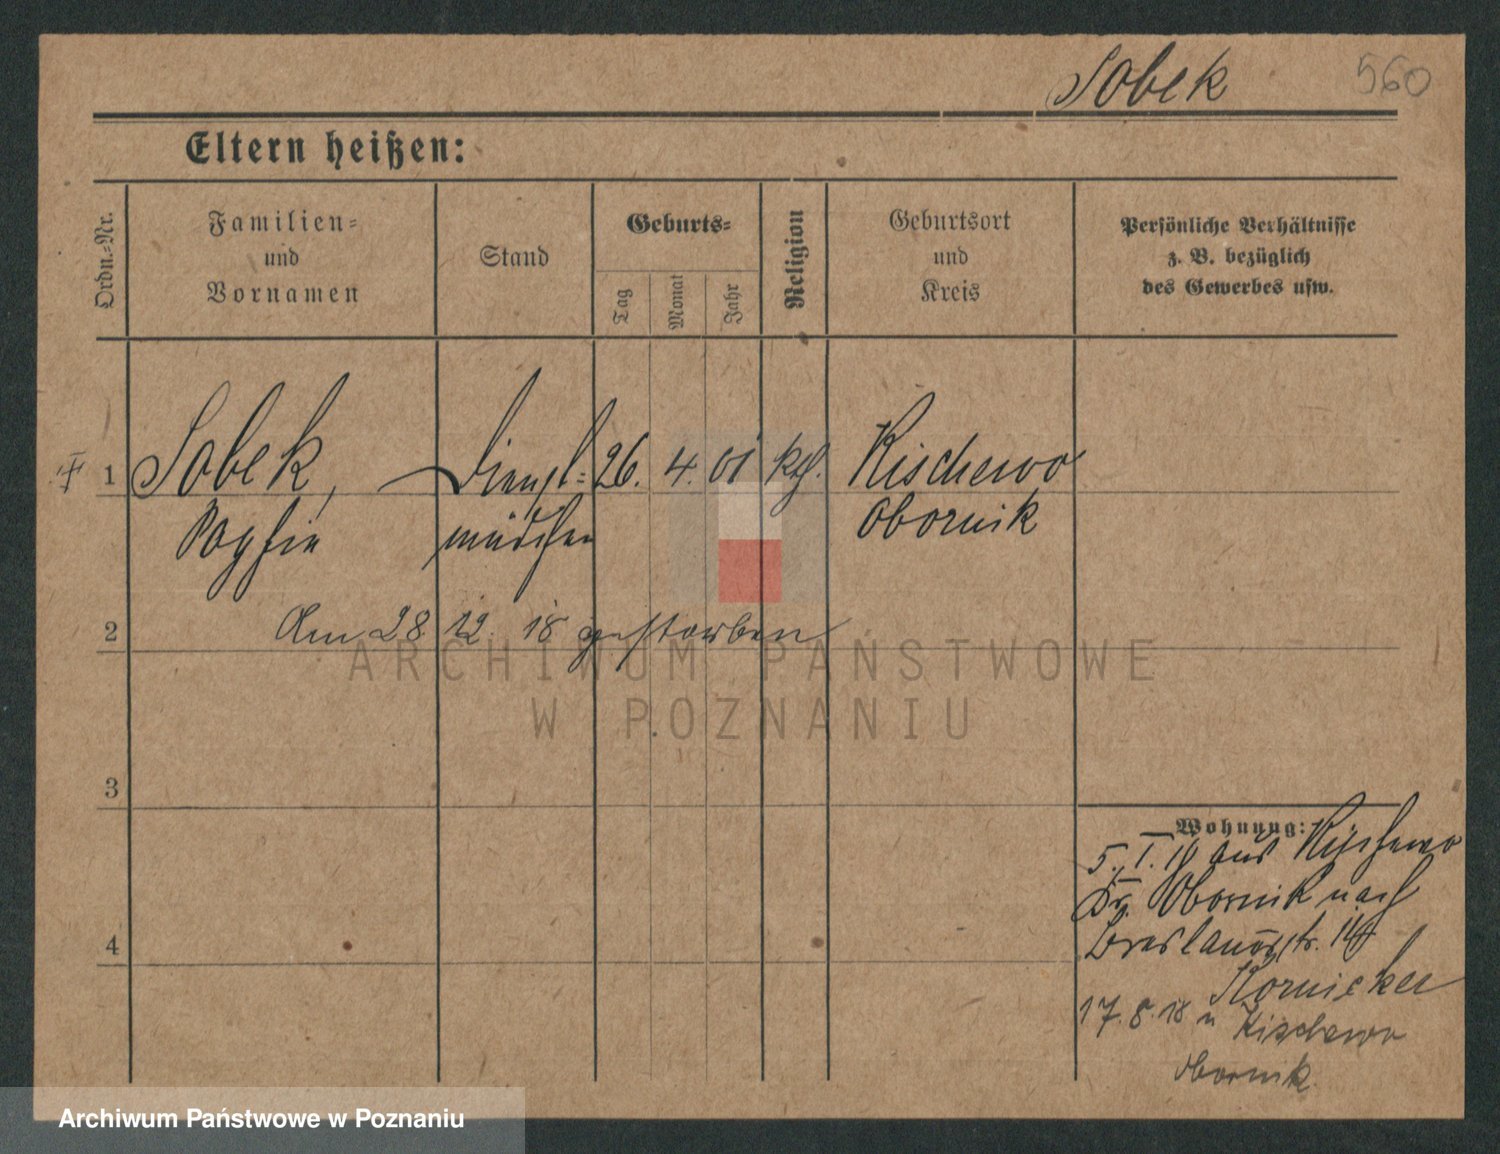 Sobek 560
Eltern heißen:
Ordn.-Nr.
Familien-
und
Vornamen
Stand
Geburts-
Tag
Monat
Jahr
Religion
Geburtsort
und
Kreis
Persönliche Verhältnisse
z. B. bezüglich
des Gewerbes usw.
1 Sobek, Dienst- 26. 4. 01 kth. Kischewo
Sophie mädchen Obornik
2 Am 28 12. 18 gestorben
3
4
Wohnung:
5. I. aus Kischewo
Kr. Obornik nach
Breslauerstr.
Kornicker
17. 8. 18 n Kischewo
Obornik
ARCHIWUM PAŃSTWOWE
W POZNANIU
Archiwum Państwowe w Poznaniu